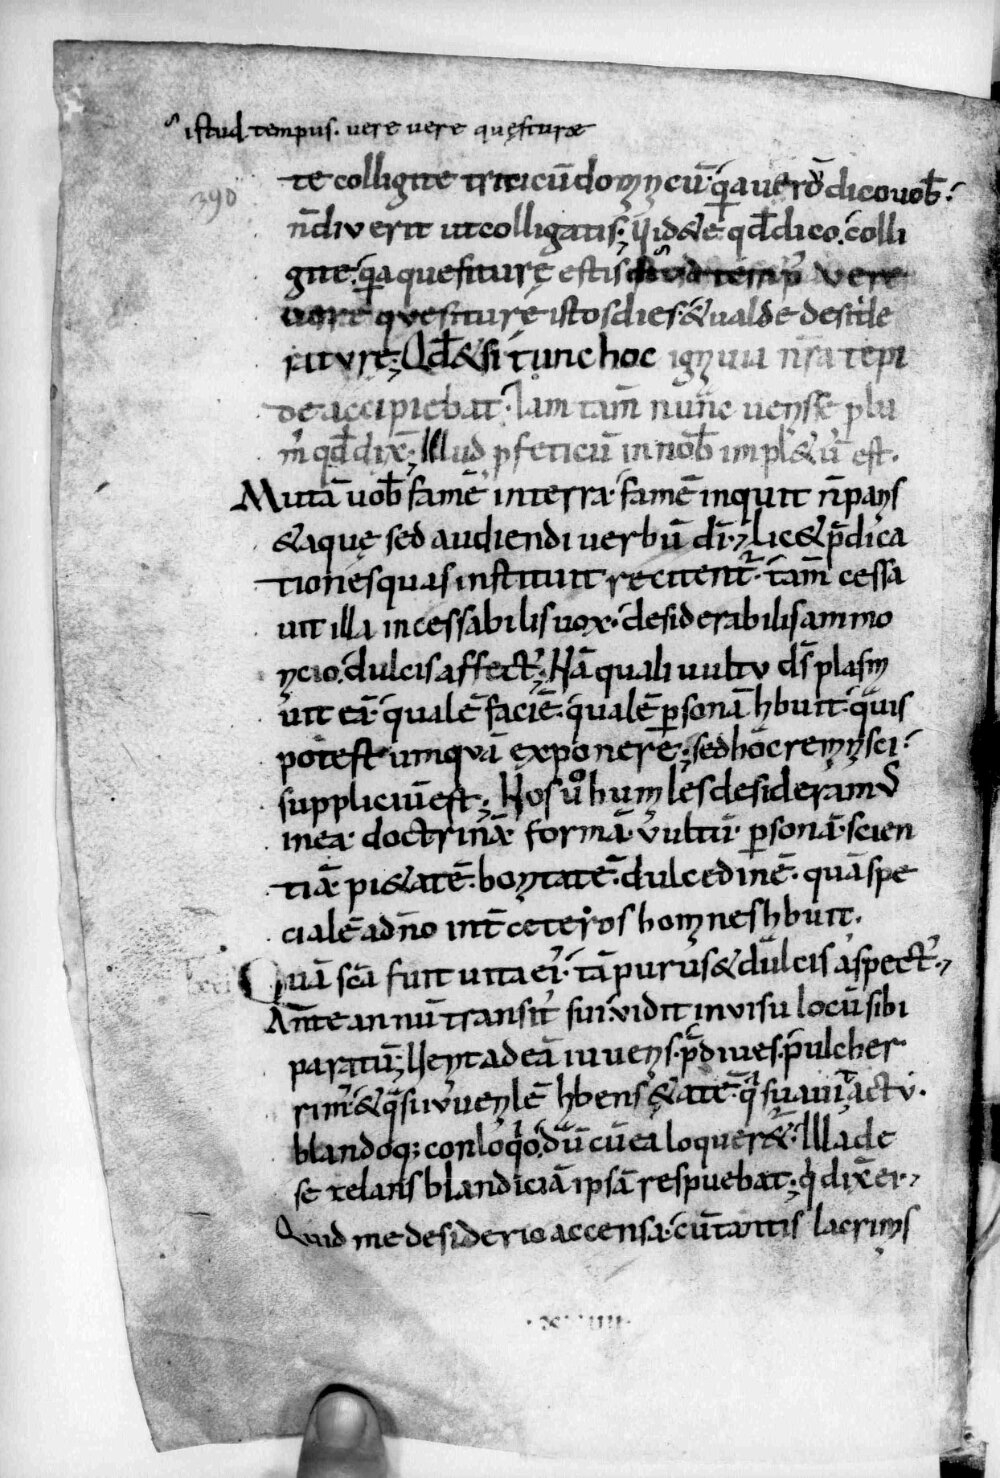 istud tempus. vere vere quęsturæ
390
te colligite triticū domnicū. quia uerū dico uob̄.
n̄ diu erit ut colligatis; id & ē qđ dico. colli
gite. quia quesiturę estis istud temp' vere
uere quesiturę istos dies. & ualde deside
raturę; Qđ & si tunc hoc ignauia nr̄a tepi
de accipiebat. Iam tam̄ nunc uenisse plu
rim' qđ dix̄; Illud pfeticū in nob̄ impl&ū est.
Mittā uob̄ famē in terra. famē inquit n̄ panis
& aquę sed audiendi uerbū dn̄i; Lic& p̄dica
tiones quas instituit recitent'. tam̄ cessa
uit illa incessabilis uox. desiderabilis ammo
nicio. dulcis affect'; Nā quali uultu ds̄ plasm
uit eā. qualē faciē. qualē personā hbuit. quis
potest umquā exponere; sed hoc reminisci.
suppliciū est; Nos ū humiles desideramus
in ea doctrinā formā. vultū. personā. scien
tiā pi&atē. bonitatē. dulcedinē. quā spe
cialē a dn̄o int̄ ceteros homines hbuit.
Quā sc̄a fuit uita ei'. tā purus & dulcis aspect'.
Ante annū transit' sui. vidit in visu locū sibi
paratū; Uenit ad eā iuuenis. p̄diues. p̄pulcher
rim'. & quasi iuuenilē hbens &atē. qui suaui tactu.
blandoq; conloquio. dū cū ea loquer&'. Illa de
se relans blandiciā ipsā respuebat; qui dix̄ ei.
Quid me desiderio accensa. cū tantis lacrimis